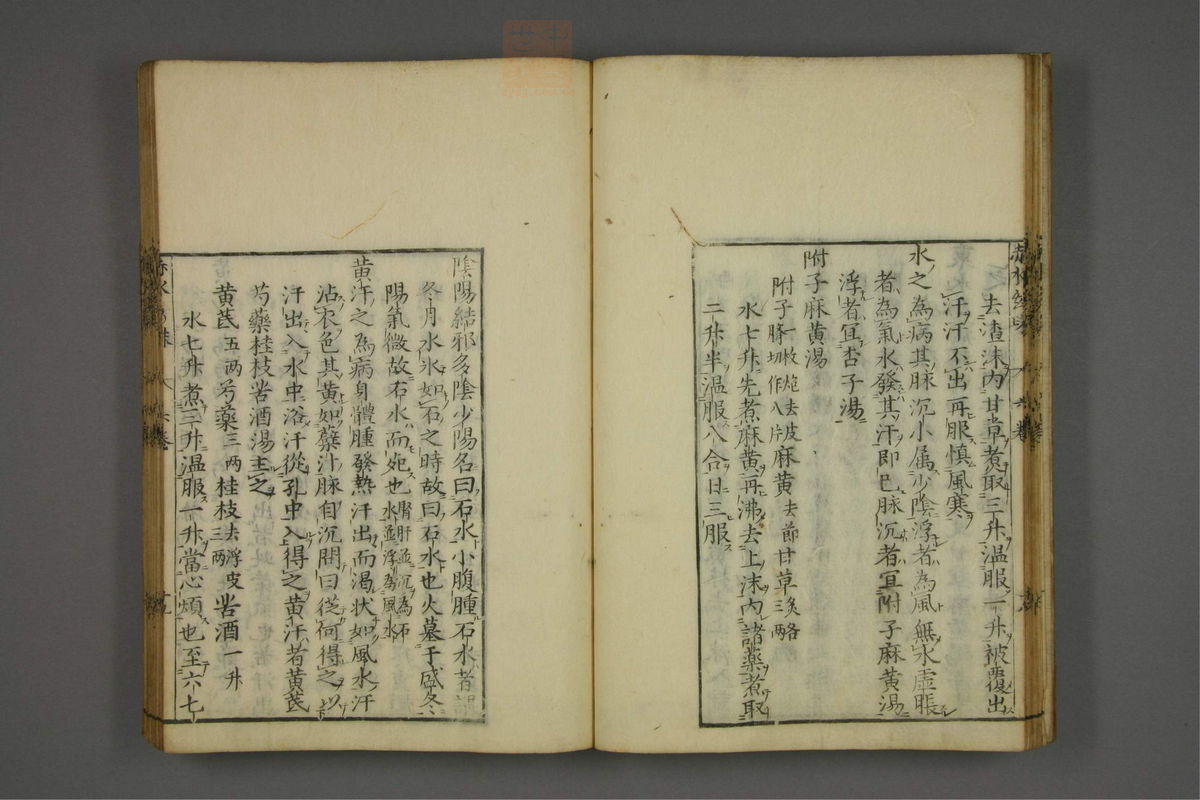 去渣沫内甘草煮取三升温服一升被覆出
汗汗不出再服慎風寒
水之為病其脉沉小属少陰浮者為風無水虚脹
者為氣水發其汗即已脉沉者冝附子麻黄湯
浮者冝杏子湯
附子麻黄湯
附子一枚炮去皮臍切作八片麻黄去節甘草炙各三两
水七升先煮麻黄再沸去上沫内諸藥煮取
二升半温服八合日三服
陰陽結邪多陰少陽名曰石水小腹腫石水者謂
冬月水氷如石之時故曰石水也火墓于盛冬
陽氣微故石水而死也腎肝並沉為石水並浮為風水
黄汗之為病身體腫發熱汗出而渴状如風水汗
沾衣色其黄如蘗汁脉自沉問曰從何得之以
汗出入水中浴汗從孔中入得之黄汗者黄茋
芍藥桂枝苦酒湯主之
黄茋五两芍藥三两桂枝去浮皮三两苦酒一升
水七升煮三升温服一升當心煩也至六七